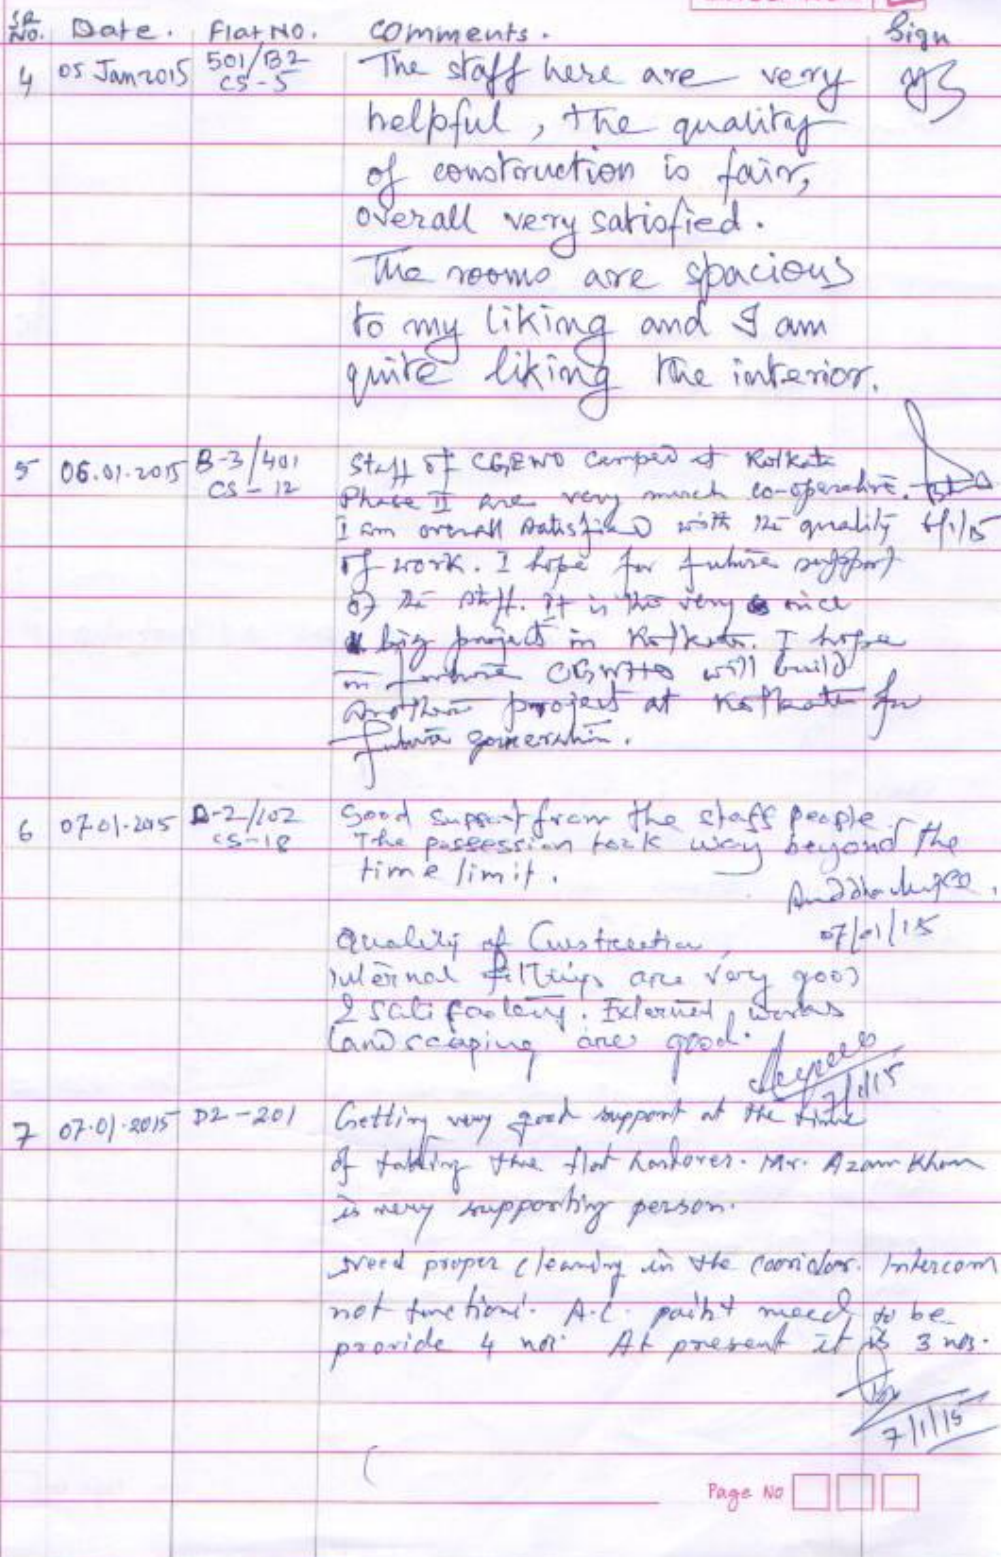 SR No. Date. Flat No. Comments. Sign
4 05 Jan 2015 501/B2 The staff here are very
CS-5
helpful, the quality
of construction is fair,
overall very satisfied.
The rooms are spacious
to my liking and I am
quite liking the interior.
5 06.01.2015 B-3/401 Staff of CGEWO camped at Kolkata
CS-12 Phase II are very much co-operative.
I am overall satisfied with the quality 6/1/15
of work. I hope for future support
of the staff. It is the very nice
big project in Kolkata. I hope
in future CGEWHO will build
another project at Kolkata for
future generation.
6 07.01.2015 D-2/102 Good support from the staff people.
CS-18 The possession took way beyond the
time limit.
07/01/15
Quality of Construction,
internal fittings are very good
& satisfactory. External works
landscaping are good.
7/1/15
7 07.01.2015 D2-201 Getting very good support at the time
of taking the flat handover. Mr. Azam Khan
is very supporting person.
Need proper cleaning in the corridor. Intercom
not functional. A.C. point need to be
provide 4 nos. At present it is 3 nos.
7/1/15
Page No